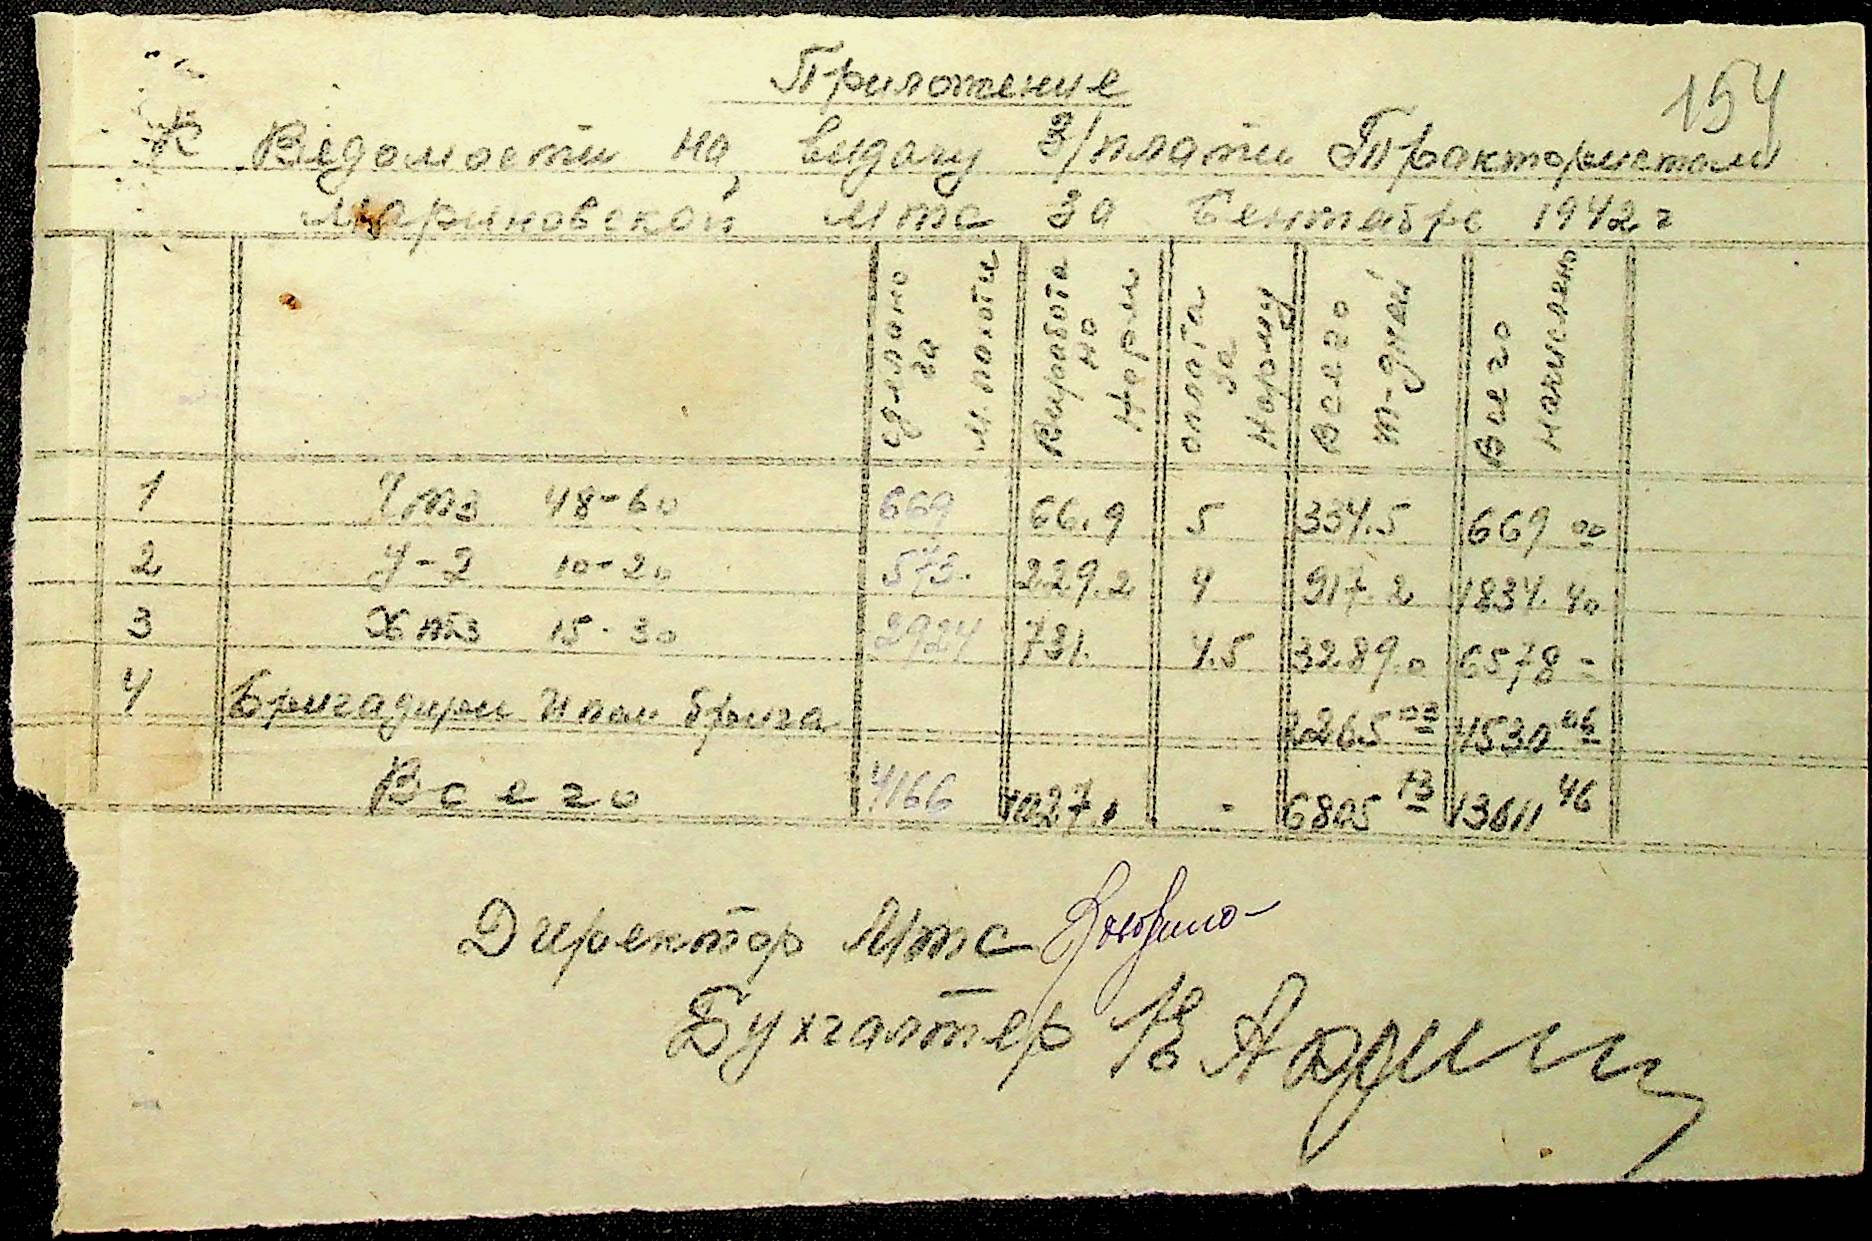 Приложение
154
К Ведомости на выдачу З/платы Трактористам
Мариновской МТС за Сентябрь 1942 г
сделано га М. пахоты
Выработано Норм
оплата за Норму
Всего т-дней
Всего начислено
1 ЧТЗ 48-60 669 66.9 5 334.5 669 00
2 У-2 10-20 573. 229.2 4 917.2 1834.40
3 ХТЗ 15-30 2924 731. 4.5 3289.0 6578 -
4 Бригадиры и пом брига 2265 03 4530 06
Всего 4166 1027,1 - 6805 73 13611 46
Директор МТС
Бухгалтер